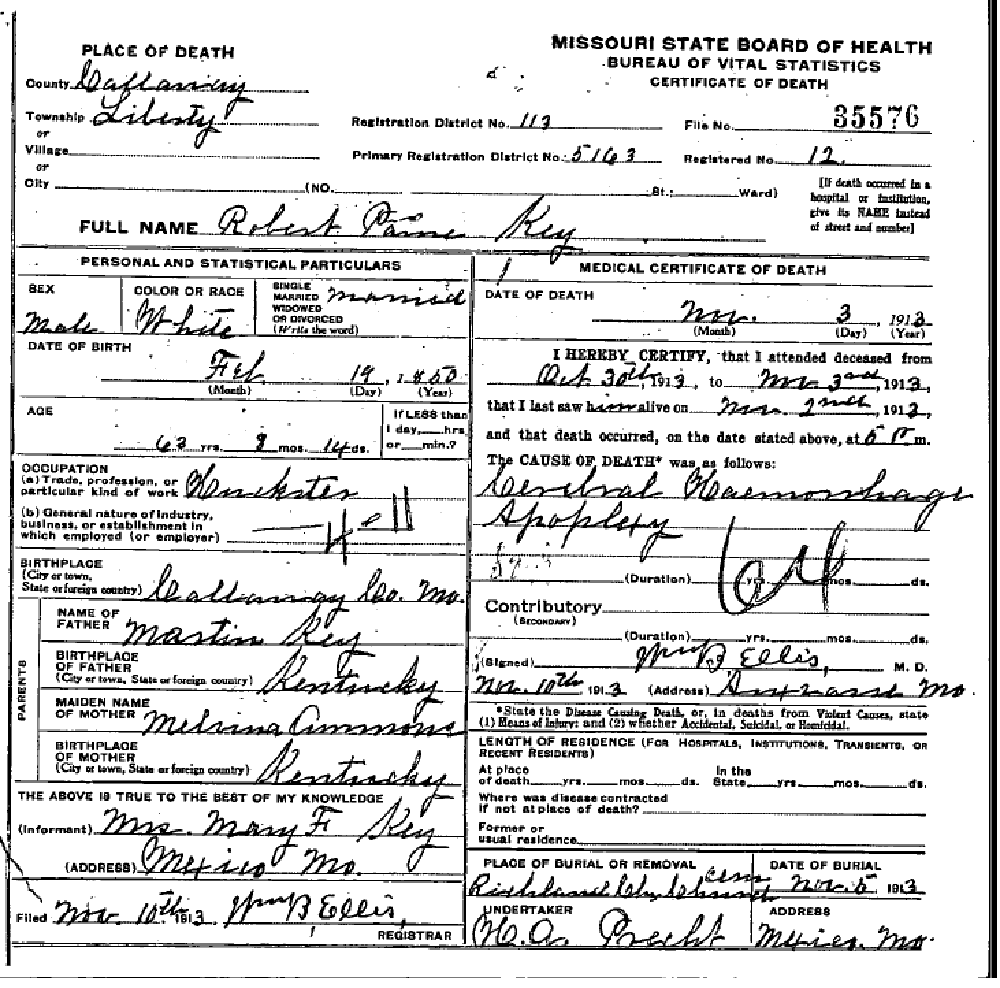 MISSOURI STATE BOARD OF HEALTH
BUREAU OF VITAL STATISTICS
CERTIFICATE OF DEATH
PLACE OF DEATH
County Callaway
Township Liberty
or
Village
or
City (NO. St.; Ward)
Registration District No. 113 File No. 35576
Primary Registration District No. 5163 Registered No. 12
[If death occurred in a
hospital or institution,
give its NAME instead
of street and number]
FULL NAME Robert Paine Key
PERSONAL AND STATISTICAL PARTICULARS
SEX
Male
COLOR OR RACE
White
SINGLE
MARRIED
WIDOWED
OR DIVORCED
(Write the word)
Married
DATE OF BIRTH
Feb 19, 1850
(Month) (Day) (Year)
AGE
63 yrs. 8 mos. 14 ds.
If LESS than
1 day, hrs.
or min.?
OCCUPATION
(a) Trade, profession, or
particular kind of work Huckster
(b) General nature of industry,
business, or establishment in
which employed (or employer)
BIRTHPLACE
(City or town,
State or foreign country) Callaway Co. Mo.
PARENTS
NAME OF
FATHER Martin Key
BIRTHPLACE
OF FATHER
(City or town, State or foreign country) Kentucky
MAIDEN NAME
OF MOTHER Melvina Ammons
BIRTHPLACE
OF MOTHER
(City or town, State or foreign country) Kentucky
THE ABOVE IS TRUE TO THE BEST OF MY KNOWLEDGE
(Informant) Mrs. Mary F Key
(ADDRESS) Mexico Mo.
Filed Nov 10th 1913 Wm B Ellis,
REGISTRAR
MEDICAL CERTIFICATE OF DEATH
DATE OF DEATH
Nov. 3, 1913
(Month) (Day) (Year)
I HEREBY CERTIFY, that I attended deceased from
Oct 30th, 1913, to Nov 3rd, 1913,
that I last saw him alive on Nov. 2nd, 1913,
and that death occurred, on the date stated above, at m.
The CAUSE OF DEATH* was as follows:
Cerebral Haemorrhage
Apoplexy
64
(Duration) yrs. mos. ds.
Contributory
(SECONDARY)
(Duration) yrs. mos. ds.
(Signed) Wm B Ellis, M. D.
Nov. 10th 1913 (Address) Mo.
*State the Disease Causing Death, or, in deaths from Violent Causes, state
(1) Means of Injury; and (2) whether Accidental, Suicidal, or Homicidal.
LENGTH OF RESIDENCE (FOR HOSPITALS, INSTITUTIONS, TRANSIENTS, OR
RECENT RESIDENTS)
At place
of death yrs. mos. ds.
In the
State yrs. mos. ds.
Where was disease contracted
if not at place of death?
Former or
usual residence
PLACE OF BURIAL OR REMOVAL
Richland Church Cem
DATE OF BURIAL
Nov. 5 1913
UNDERTAKER
H.A. Precht
ADDRESS
Mexico. Mo.